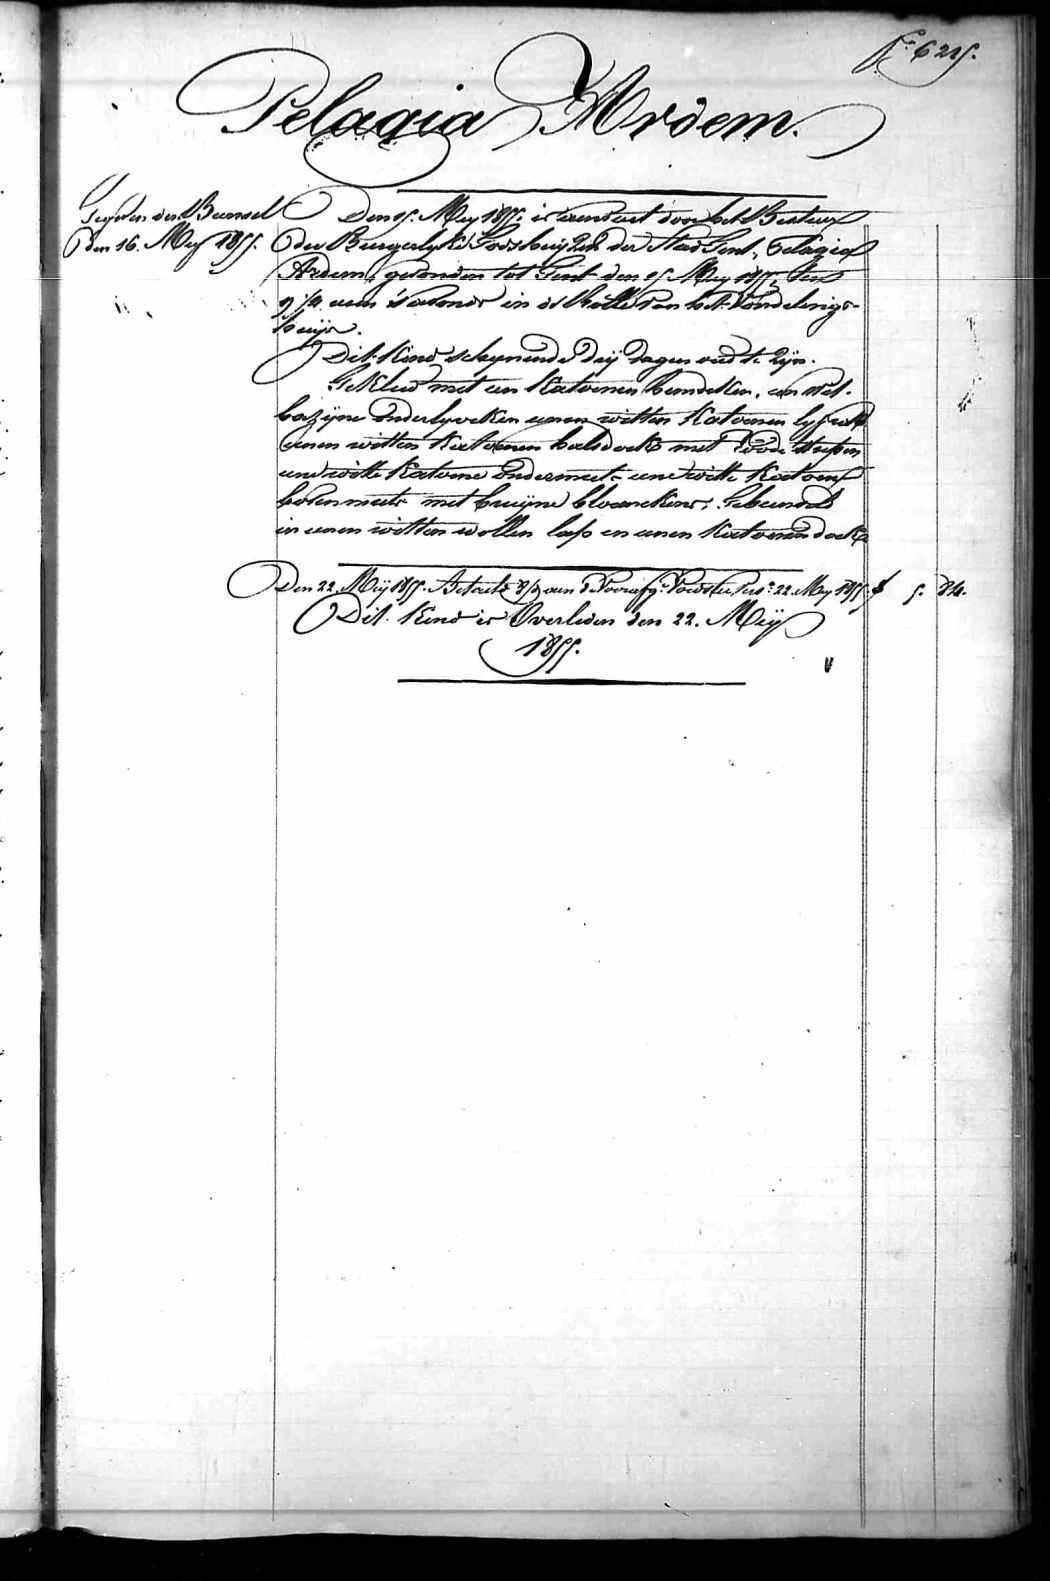 Fo 625.
Pelagia Ardem.
den 16. Mey 1855.
Den 15. Mey 1855. is aenveert door het Bestuer
der Burgerlyke Godshuijzen der Stad Gent, Pelagia
Ardem, gevonden tot Gent den 15 Mey 1855, ten
9 1/4 uren 's avonds in de Rolle van het Vondelings-
huijs.
Dit Kind schynende drij dagen oud te zijn.
Gekleed met een Katoenen hemdeken, een wit
bazijne onderlyveken eenen witten Katoenen lyfrok
eenen witten Katoenen halsdoek met roode streepen
eene witte Katoene ondermuts eene witte Katoene
bovenmuts met bruijne bloemekens, Gebunseld
in eenen witten wollen lap en eenen Katoenen doek
Den 22. Meij 1855. Betaeld aen de Voorsz. Voedster, 22. Mey 1855 f 5.
Dit Kind is Overleden den 22. Meij
1855.